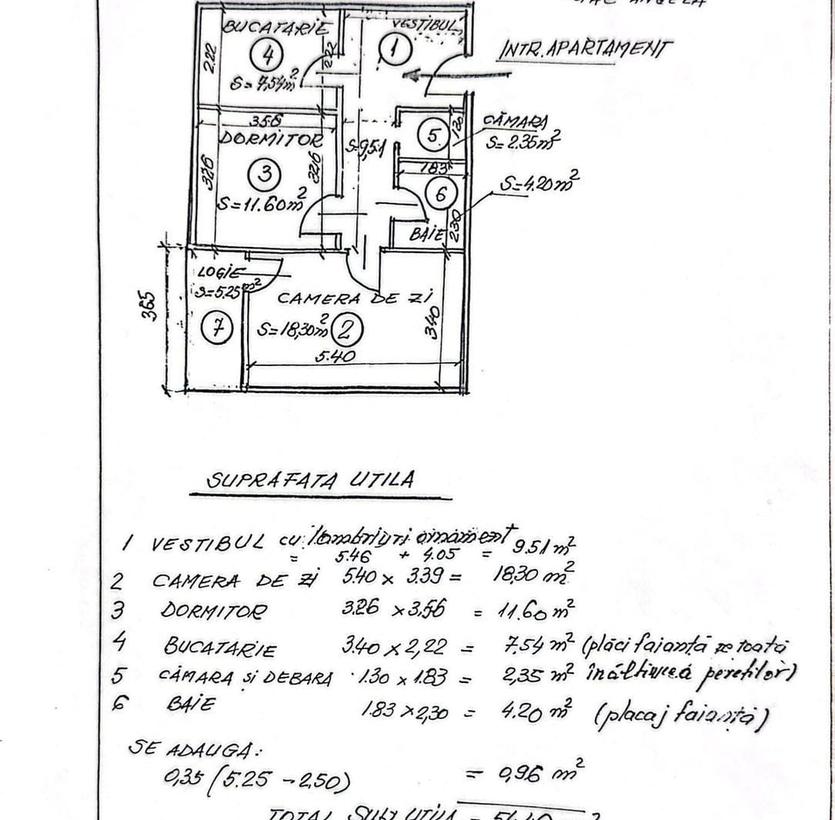 ANGELA
BUCATARIE
4
S=7,54m²
2.22
222
VESTIBUL
1
INTR. APARTAMENT
356
DORMITOR
3
S=11.60m²
326
326
S=9,51
5
CĂMARA
S=2.35m²
183
6
S=4.20m²
BAIE
230
LOGIE
S=5.25m²
7
365
CAMERA DE ZI
S=18,30m²
2
5.40
340
SUPRAFATA UTILA
1 VESTIBUL cu lambriuri ornament
= 5.46 + 4.05 = 9.51 m²
2 CAMERA DE ZI 5.40 x 3.39 = 18.30 m²
3 DORMITOR 3.26 x 3.56 = 11.60 m²
4 BUCATARIE 3.40 x 2,22 = 7.54 m² (plăci faianță pe toată
5 CĂMARA și DEBARA 1.30 x 1.83 = 2,35 m² înălțimea pereților)
6 BAIE 1.83 x 2,30 = 4.20 m² (placaj faianță)
SE ADAUGA:
0,35 (5.25 - 2,50) = 0,96 m²
TOTAL